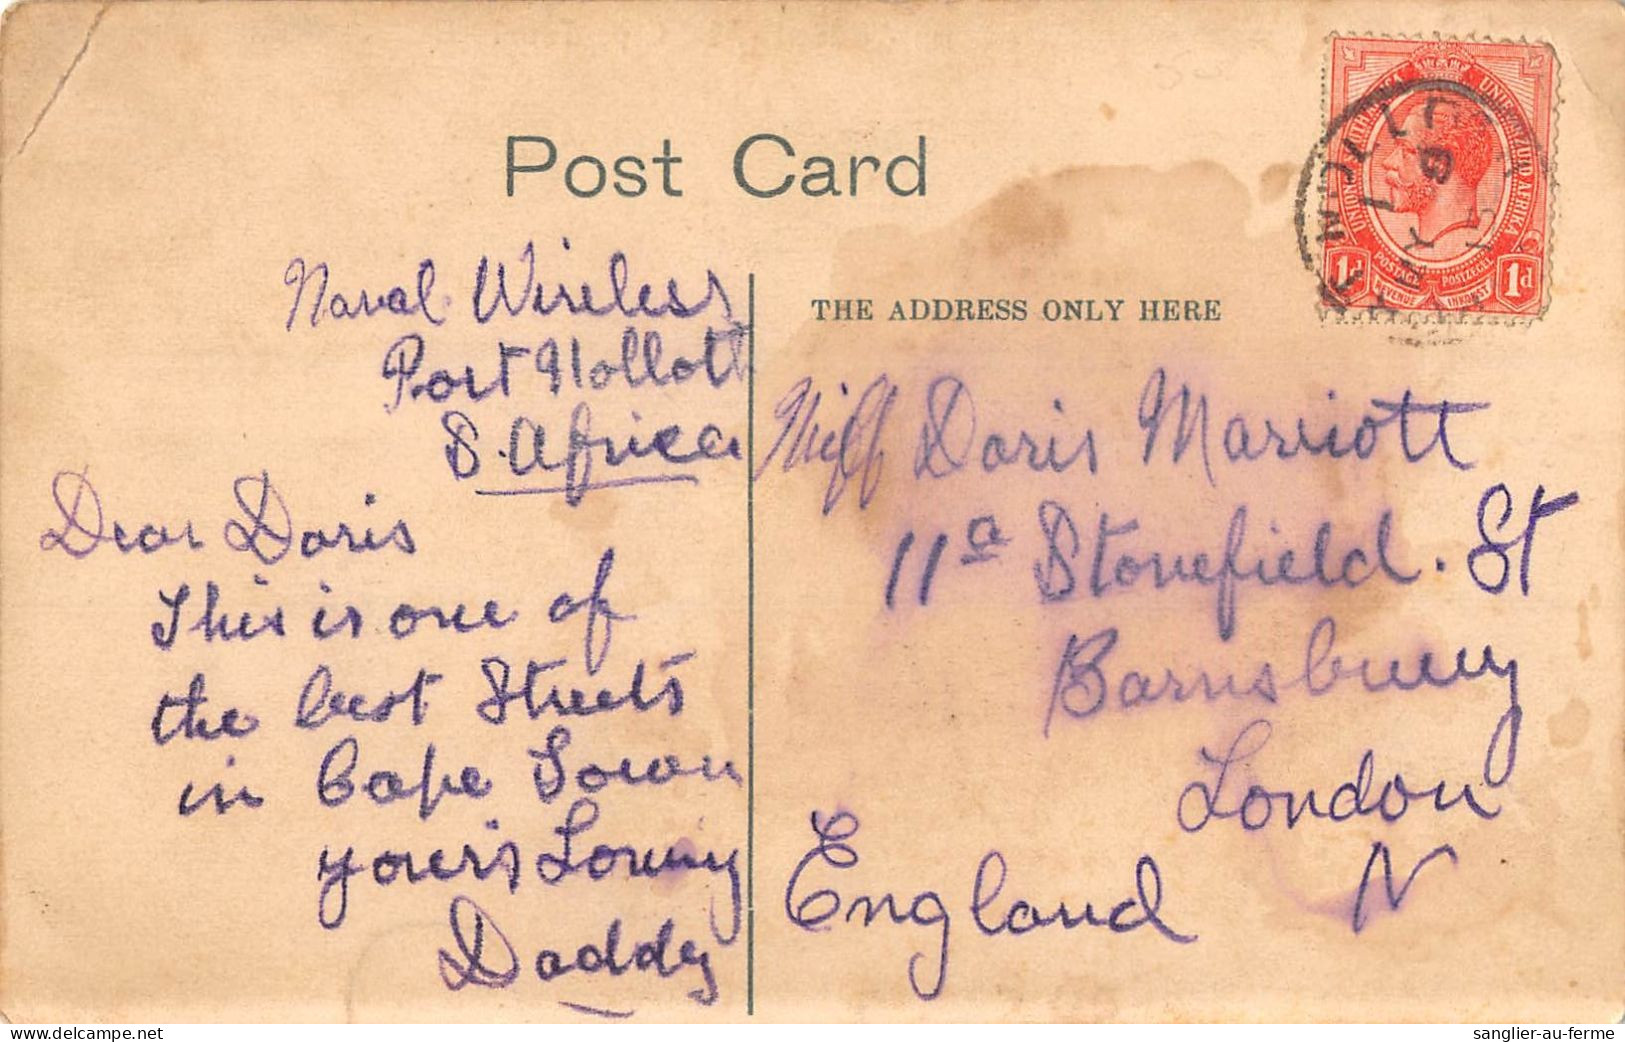 Post Card
Naval Wireless
Port Nolloth
S. Africa
Dear Doris
This is one of
the best Streets
in Cape Town
your's Loving
Daddy
THE ADDRESS ONLY HERE
Miss Doris Marriott
11a Stonefield. St
Barnsbury
London
N
England
UNION OF SOUTH AFRICA UNIE VAN ZUID AFRIKA
1d POSTAGE POSTZEGEL 1d
REVENUE INKOMST
sanglier-au-ferme